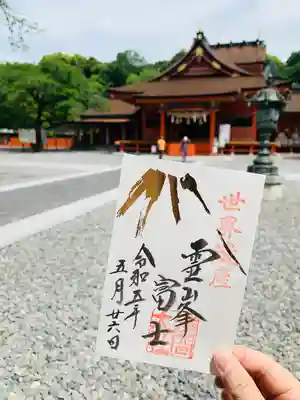 世界遺産
霊峰
富士
令和五年
五月廿六日